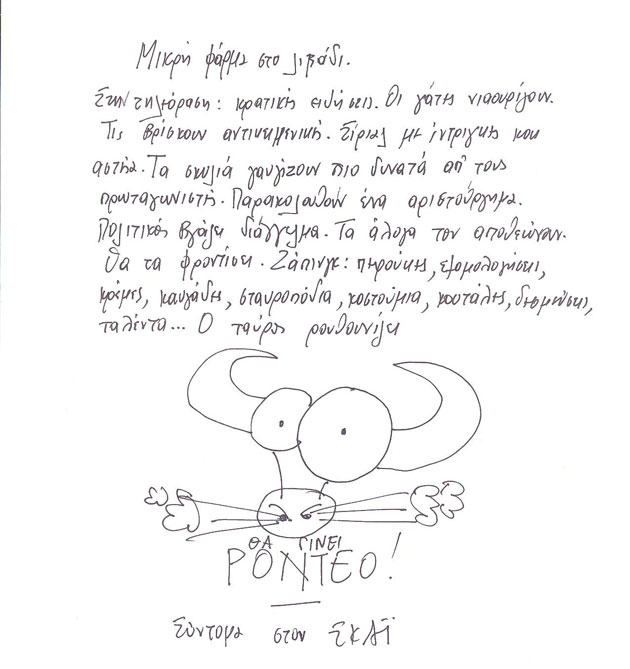 Μικρή φάρμα στο λιβάδι.
Στην τηλεόραση: κρατικές ειδήσεις. Οι γάτες νιαουρίζουν.
Τις βρίσκουν αντικειμενικές. Σίριαλ με ίντριγκες και
αστεία. Τα σκυλιά γαυγίζουν πιο δυνατά απ τους
πρωταγωνιστές. Παρακολουθούν ένα αριστούργημα.
Πολιτικός βγάζει διάγγελμα. Τα άλογα τον αποθεώνουν.
Θα τα φροντίσει. Ζάπινγκ: περούκες, εξομολογήσεις,
κρέμες, καυγάδες, σταυροπόδια, κοστούμια, κουτάλες, δεσμεύσεις,
ταλέντα... Ο ταύρος ρουθουνίζει
ΘΑ ΓΙΝΕΙ
ΡΟΝΤΕΟ!
Σύντομα στον ΣΚΑΪ